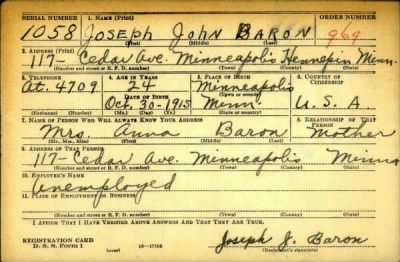 SERIAL NUMBER 1. NAME (Print) ORDER NUMBER
1058 JOSEPH JOHN BARON 969
(First) (Middle) (Last)
2. ADDRESS (Print)
117- Cedar Ave. Minneapolis Hennepin Minn.
(Number and street or R. F. D. number) (Town) (County) (State)
3. TELEPHONE 4. AGE IN YEARS 5. PLACE OF BIRTH 6. COUNTRY OF CITIZENSHIP
At. 4709 24 Minneapolis
DATE OF BIRTH (Town or county)
Oct. 30-1915 Minn. U. S. A
(Exchange) (Number) (Mo.) (Day) (Yr.) (State or country)
7. NAME OF PERSON WHO WILL ALWAYS KNOW YOUR ADDRESS 8. RELATIONSHIP OF THAT PERSON
Mrs. Anna Baron Mother
(Mr., Mrs., Miss) (First) (Middle) (Last)
9. ADDRESS OF THAT PERSON
117- Cedar Ave. Minneapolis Minn
(Number and street or R. F. D. number) (Town) (County) (State)
10. EMPLOYER'S NAME
Unemployed
11. PLACE OF EMPLOYMENT OR BUSINESS
(Number and street or R. F. D. number) (Town) (County) (State)
I AFFIRM THAT I HAVE VERIFIED ABOVE ANSWERS AND THAT THEY ARE TRUE.
REGISTRATION CARD
D. S. S. FORM 1 Joseph J. Baron
(Registrant's signature)